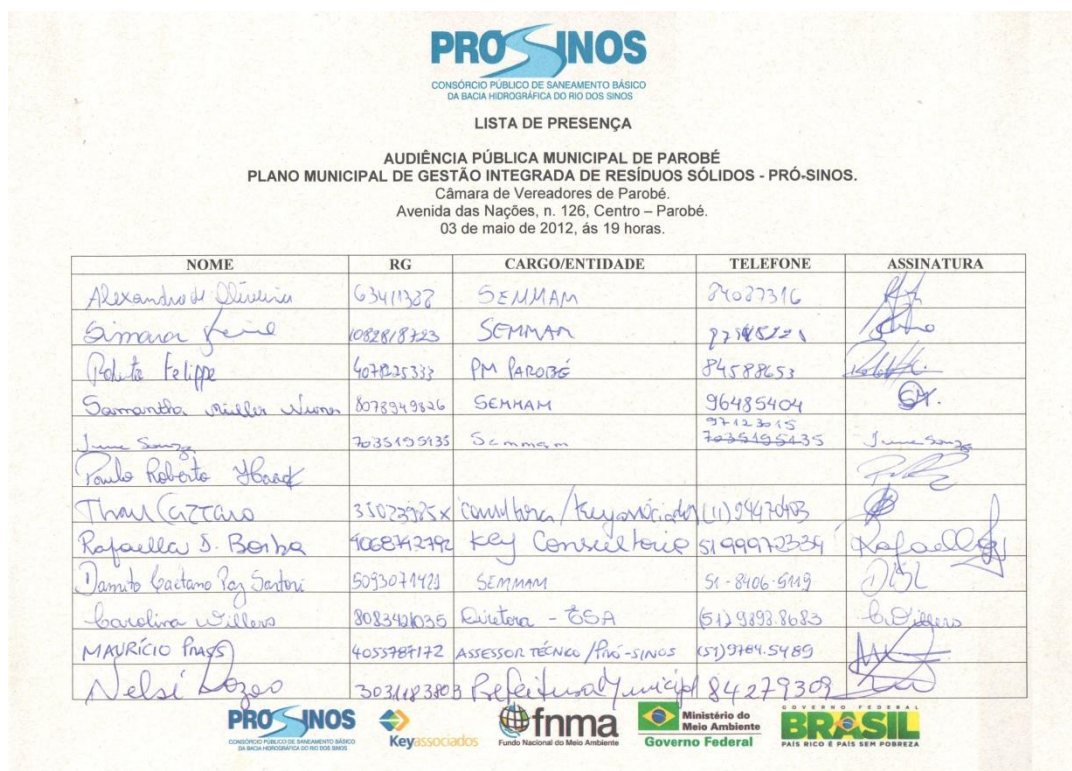 PROSINOS
CONSÓRCIO PÚBLICO DE SANEAMENTO BÁSICO
DA BACIA HIDROGRÁFICA DO RIO DOS SINOS
LISTA DE PRESENÇA
AUDIÊNCIA PÚBLICA MUNICIPAL DE PAROBÉ
PLANO MUNICIPAL DE GESTÃO INTEGRADA DE RESÍDUOS SÓLIDOS - PRÓ-SINOS.
Câmara de Vereadores de Parobé.
Avenida das Nações, n. 126, Centro – Parobé.
03 de maio de 2012, ás 19 horas.
NOME RG CARGO/ENTIDADE TELEFONE ASSINATURA
Alexandro de Oliveira SEMMAM 84087316
Simara SEMMAM
Felippe PM PAROBÉ 84588653
Samantha Müller Nunes 8078949826 SEMMAM 96485404 SM.
97123015
June Souza 7035195135 Semmam 7035195135 June Souza
Paulo Roberto Haack
Cazzaro 35023925X Consultora / Keyassociados
Rafaella S. Borba Key Consultoria Rafaella
Danrito Caetano Paz Sartori 5093071421 SEMMAM 51-8406-5119
Carolina Willers 8083421035 Diretora - ESA (51) 9393.8683 C. Willers
MAURÍCIO PRASS 4055787172 ASSESSOR TÉCNICO / PRÓ-SINOS (51) 9784.5489
Nelsi Prefeitura Municipal 84279309
PROSINOS
CONSÓRCIO PÚBLICO DE SANEAMENTO BÁSICO
DA BACIA HIDROGRÁFICA DO RIO DOS SINOS
Keyassociados
fnma
Fundo Nacional do Meio Ambiente
Ministério do
Meio Ambiente
Governo Federal
GOVERNO FEDERAL
BRASIL
PAÍS RICO É PAÍS SEM POBREZA